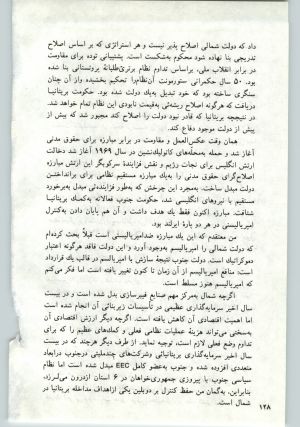 داد که دولت شمالی اصلاح پذیر نیست و هر استراتژی که بر اساس اصلاح
تدریجی بنا نهاده شود محکوم به‌شکست است. پشتیبانی توده برای مقاومت
در برابر انقلاب ملی، براساس تداوم نظام برتری‌طلبانهٔ پروتستانی بنا شده
بود. ۵۰ سال حکمرانی ستورمونت آن‌نظام‌را تحکیم بخشیده واز آن چنان
سنگری ساخته بود که خود تبدیل به‌یك دولت شده بود. حکومت بریتانیا
دریافت که هرگونه اصلاح ریشه‌ئی به‌قیمت نابودی این نظام تمام خواهد شد.
در نتیجه‌چه بریتانیا که قادر نبود دولت را اصلاح کند مجبور شد که بیش از
پیش از دولت موجود دفاع کند.
همان وقت عکس‌العمل و مقاومت در برابر مبارزه برای حقوق مدنی
آغاز شد و حمله به‌محله‌های کاتولیك‌نشین در سال ۱۹۶۹ آغاز شد دخالت
ارتش انگلیس برای نجات رژیم و نقش فزایندهٔ سرکوبگر این ارتش مبارزه
اصلاح‌گرای حقوق مدنی را به‌یك مبارزه مستقیم نظامی برای برانداختن
دولت مبدل ساخت. به‌مجرد این چرخش که به‌طور فزاینده‌ئی مبدل به‌برخورد
مستقیم با نیروهای انگلیسی شد، حکومت جنوب فعالانه به‌کمك بریتانیا
شتافت. مبارزه اکنون فقط یك هدف داشت و آن هم پایان دادن به‌کنترل
امپریالیستی در هر دو پارهٔ ایرلند بود.
من معتقدم که این یك مبارزه ضدامپریالیستی است قبلاً بحث کرده‌ام
که دولت شمالی را امپریالیسم به‌وجود آورد و این دولت فاقد هرگونه اعتبار
دموکراتیك است. دولت جنوب نتیجهٔ سازش با امپریالیسم در قالب یك قرارداد
است: منافع امپریالیسم از آن زمان تا کنون تغییر یافته است اما فکر می‌کنم
که امپریالیسم هنوز مسلط است.
اگرچه شمال به‌مرکز مهم صنایع فیبرسازی بدل شده است و در بیست
سال اخیر سرمایه‌گذاری عظیمی در تأسیسات زیربنائی آن انجام شده است
اما اهمیت اقتصادی آن کاهش یافته است. اگرچه دیگر ارزش اقتصادی آن
به‌سختی می‌تواند هزینهٔ عملیات نظامی فعلی و کمك‌های عظیم را که برای
تداوم وضع فعلی لازم است، توجیه نماید. از طرف دیگر هرچند که در بیست
سال اخیر سرمایه‌گذاری بریتانیائی وشرکت‌های چندملیتی درجنوب درابعاد
متعددی افزوده شده و جنوب به‌عضو کامل EEC مبدل شده است اما نظام
سیاسی جنوب با پیروزی جمهوری‌خواهان در ۶ استان ازدرون می‌لرزد،
بنابراین، به‌گمان من حفظ کنترل بر دوبلین یکی ازاهداف مداخله بریتانیا در
شمال است.
۱۲۸